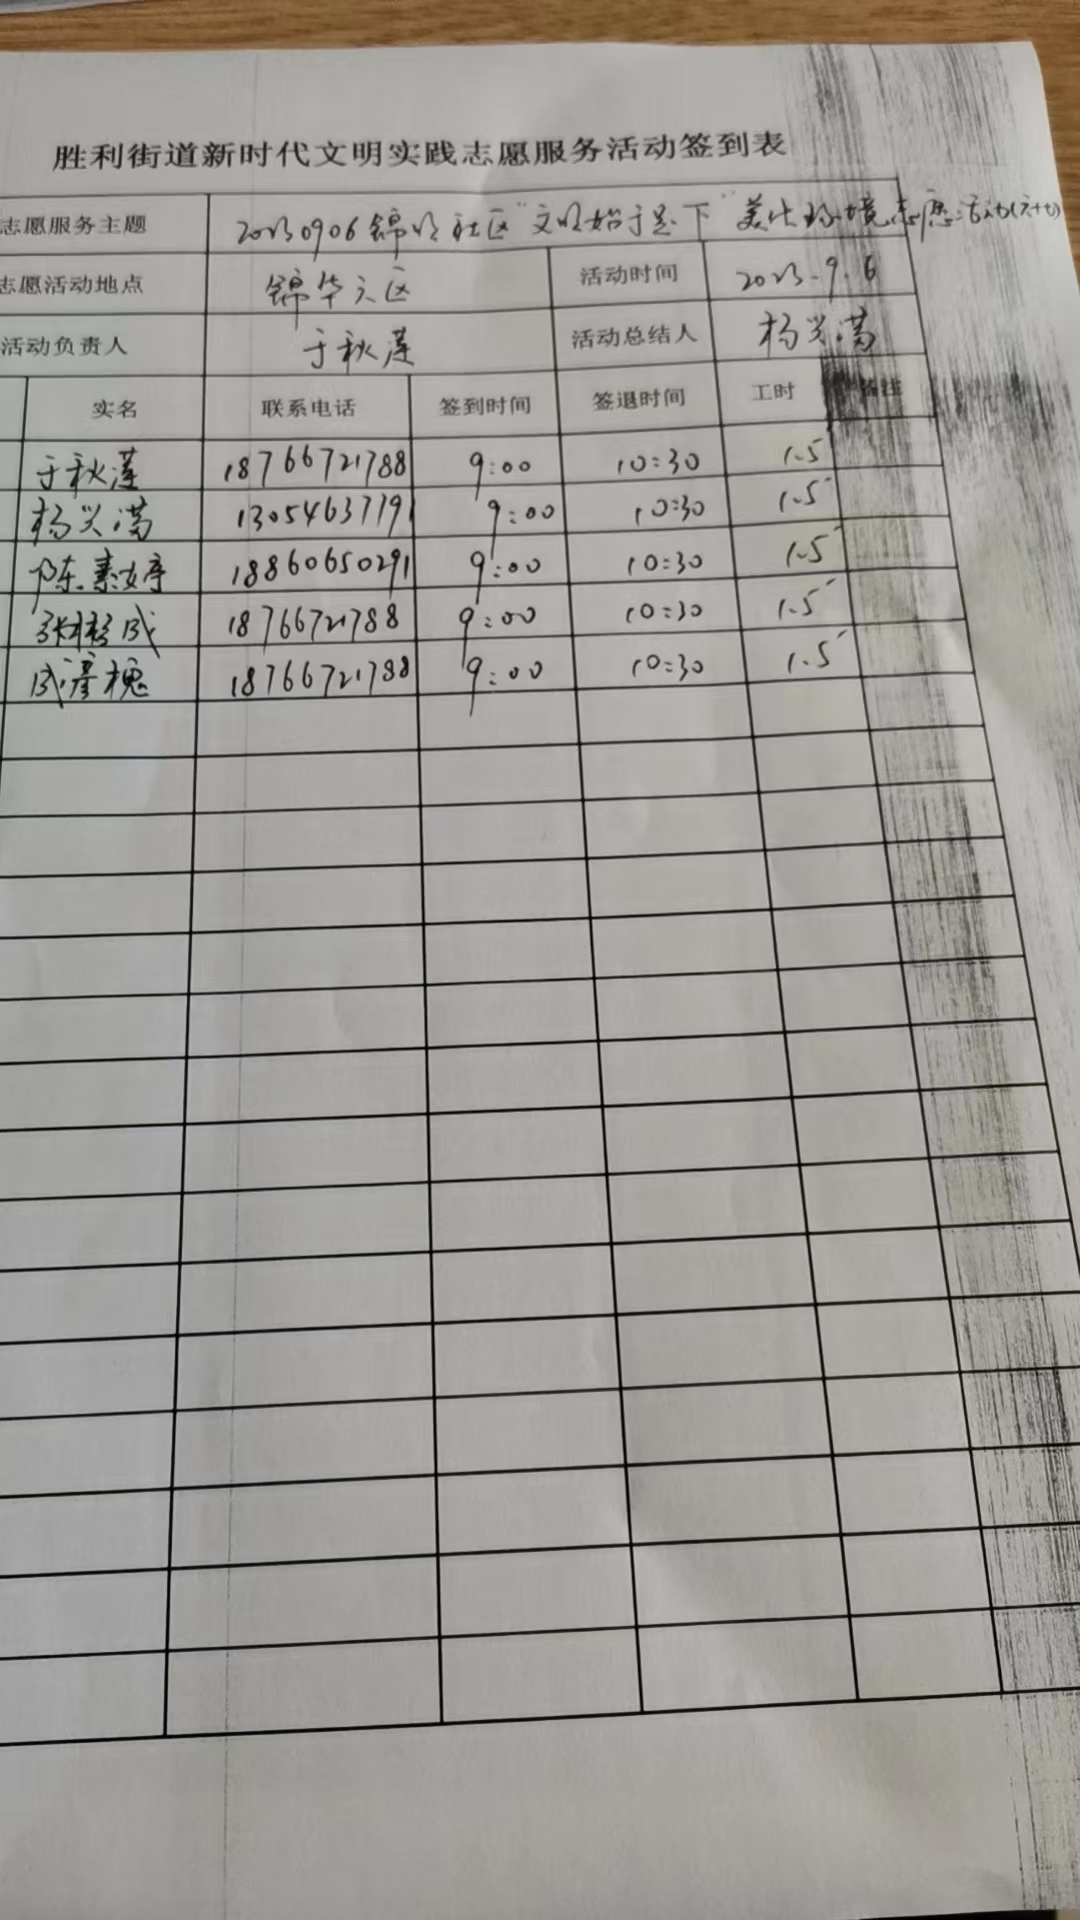 胜利街道新时代文明实践志愿服务活动签到表
志愿服务主题 20230906锦华社区"文明始于足下"美化环境志愿活动(六十七)
志愿活动地点 锦华六区 活动时间 2023.9.6
活动负责人 于秋莲 活动总结人 杨兴满
实名 联系电话 签到时间 签退时间 工时 备注
于秋莲 18766721788 9:00 10:30 1.5
杨兴满 13054637791 9:00 10:30 1.5
陈素婷 18860650291 9:00 10:30 1.5
张彬成 18766721788 9:00 10:30 1.5
成彦槐 18766721788 9:00 10:30 1.5